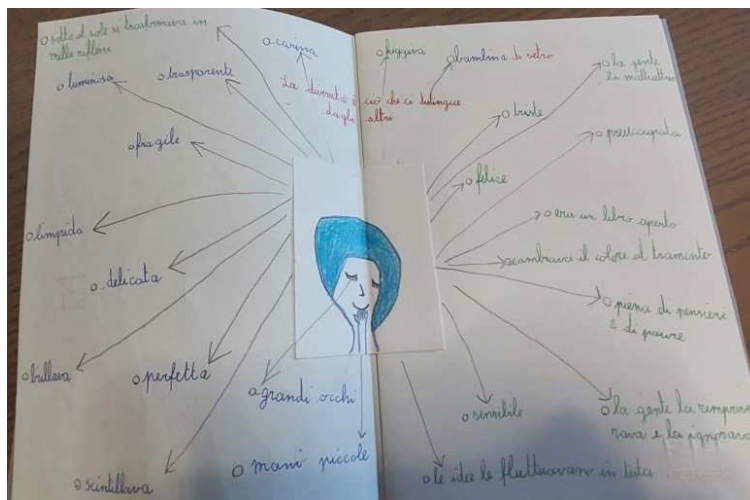 o sotto il sole si trasformava in
mille riflessi
o carina
o luminosa
o trasparente
La diversità è ciò che ci distingue
dagli altri
o fragile
o limpida
o delicata
o brillava
o perfetta
o grandi occhi
o scintillava
o mani piccole
o fuggiva
o bambina di vetro
o la gente
la maltrattava
o triste
o preoccupata
o felice
o era un libro aperto
o cambiava il colore al tramonto
o piena di pensieri
e di paure
o sensibile
o la gente la rimprove
rava e la ignorava
o le idee le fluttuavano in testa